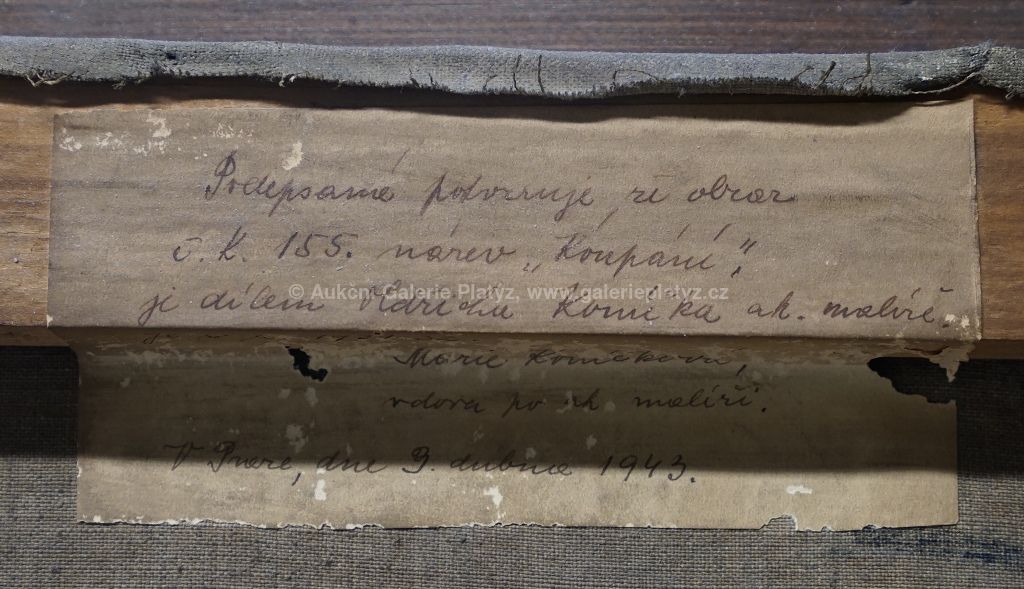 Podepsaná potvrzuje, že obraz
č. k. 155. název „Koupání",
je dílem Vlaridia Komínka ak. malíře.
© Aukční Galerie Platýz, www.galerieplatyz.cz
Marie Komínková,
vdova po ak. malíři.
V Praze, dne 9. dubna 1943.